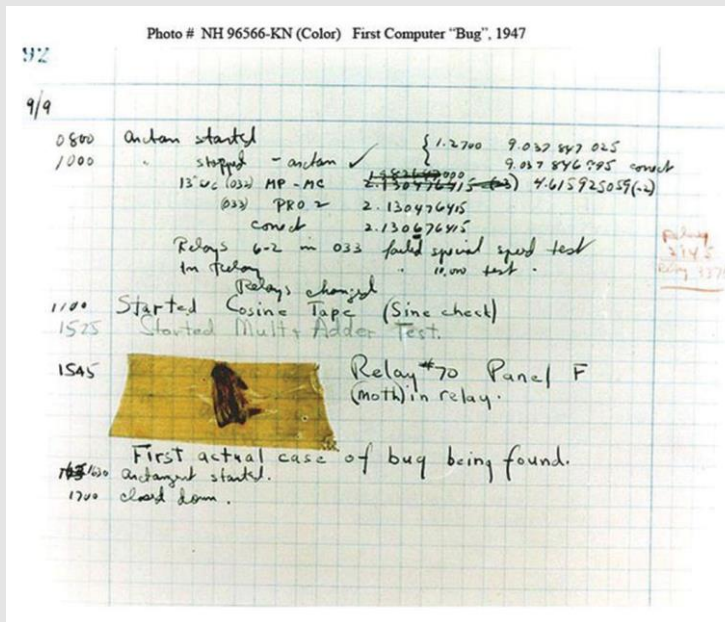 Photo # NH 96566-KN (Color) First Computer “Bug”, 1947
92
9/9
0800 Antan started
1000 " stopped - antan ✓ { 1.2700 9.037 847 025
9.037 846 995 conect
13"uc (032) MP - MC 2.130476415 (-3) 4.615925059(-2)
(033) PRO 2 2.130476415
conect 2.130676415
Relays 6-2 in 033 failed special speed test
In Relay " 10,000 test .
Relays changed
1100 Started Cosine Tape (Sine check)
1525 Started Mult + Adder Test.
1545 Relay #70 Panel F
(moth) in relay.
First actual case of bug being found.
1630 antangent started.
1700 closed down .